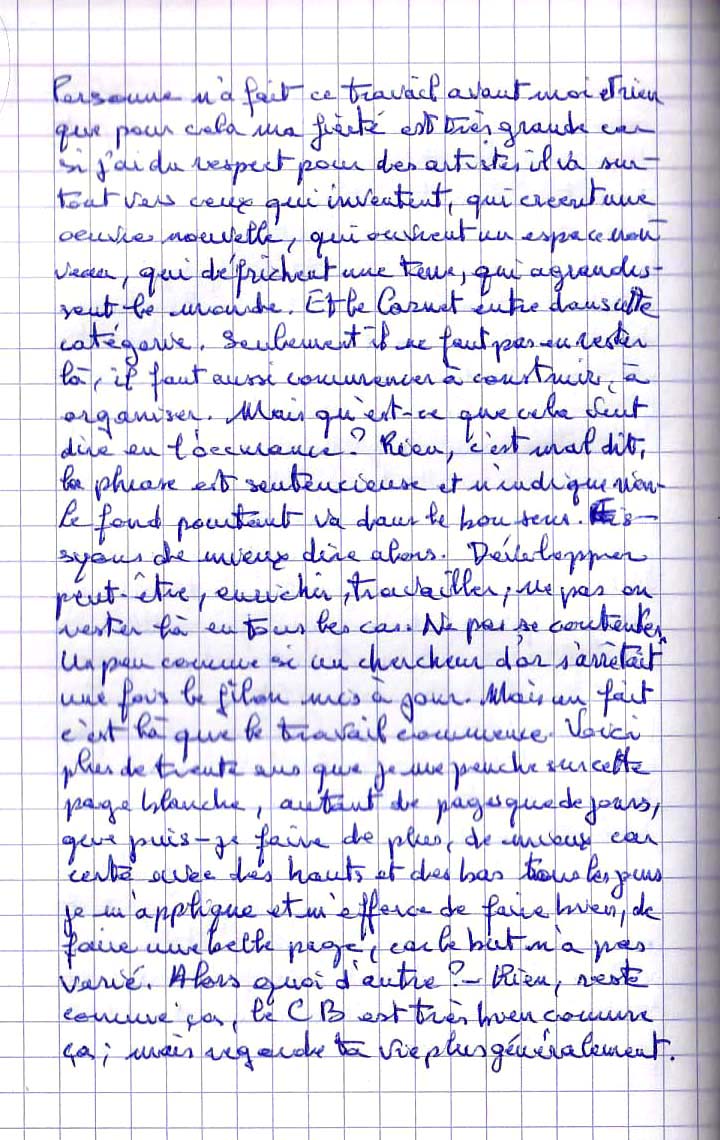 Personne n'a fait ce travail avant moi et rien
que pour cela ma fierté est très grande car
si j'ai du respect pour des artistes, il va sur-
tout vers ceux qui inventent, qui créent une
oeuvre nouvelle, qui ouvrent un espace nou-
veau, qui défrichent une terre, qui agrandis-
sent le monde. Et le Carnet entre dans cette
catégorie. Seulement il ne faut pas en rester
là, il faut aussi commencer à construire, à
organiser. Mais qu'est-ce que cela veut
dire en l'occurance? Rien, c'est mal dit,
la phrase est sentencieuse et n'indique rien.
Le fond pourtant va dans le bon sens. Es-
sayons de mieux dire alors. Développer
peut-être, enrichir, travailler; ne pas en
rester là en tous les cas. Ne pas se contenter.
Un peu comme si un chercheur d'or s'arrêtait
une fois le filon mis à jour. Mais en fait
c'est là que le travail commence. Voici
plus de trente ans que je me penche sur cette
page blanche, autant de pages que de jours,
que puis-je faire de plus, de mieux car
certe avec des hauts et des bas tous les jours
je m'applique et m'efforce de faire bien, de
faire une belle page, car le but n'a pas
varié. Alors quoi d'autre? - Rien, reste
comme ça, le CB est très bien comme
ça; mais regarde ta vie plus généralement.